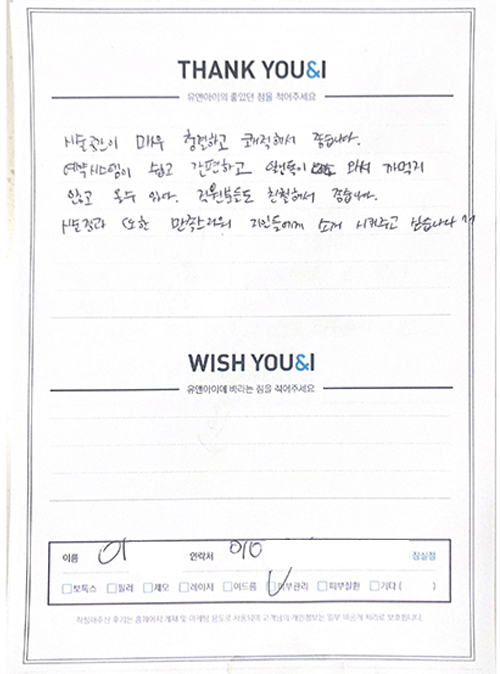 THANK YOU&I
유앤아이의 좋았던 점을 적어주세요
시술공간이 매우 청결하고 쾌적해서 좋습니다.
예약시스템이 쉽고 간편하고 와서 까먹지
않고 올수 있다. 직원분들도 친절해서 좋습니다.
시술결과 또한 만족스러워 지인들에게 소개 시켜주고 싶습니다
WISH YOU&I
유앤아이에 바라는 점을 적어주세요
이름 이 연락처 010 잠실점
보톡스 필러 제모 레이저 여드름 피부관리 피부질환 기타 ( )
작성해주신 후기는 홈페이지 게재 및 마케팅 용도로 사용되며 고객님의 개인정보는 일부 비공개 처리로 보호됩니다.